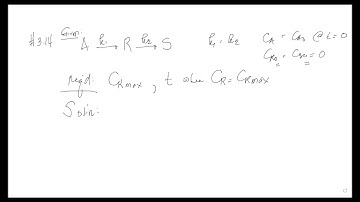 #3.14 Given: A →k1 R →k2 S k1 = k2 CA = CA0 @ t=0
CR0 = CS0 = 0
req'd: CRmax, t when CR = CRmax
Sol'n: